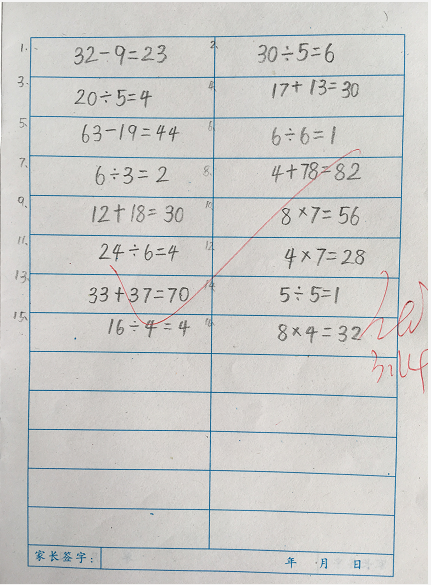 1. 32-9=23 2. 30÷5=6
3. 20÷5=4 4. 17+13=30
5. 63-19=44 6. 6÷6=1
7. 6÷3=2 8. 4+78=82
9. 12+18=30 10. 8×7=56
11. 24÷6=4 12. 4×7=28
13. 33+37=70 14. 5÷5=1
15. 16÷4=4 16. 8×4=32
家长签字: 年 月 日